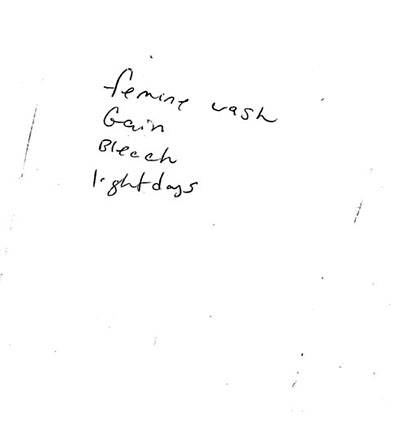 femine wash
Gain
Bleach
lightdays